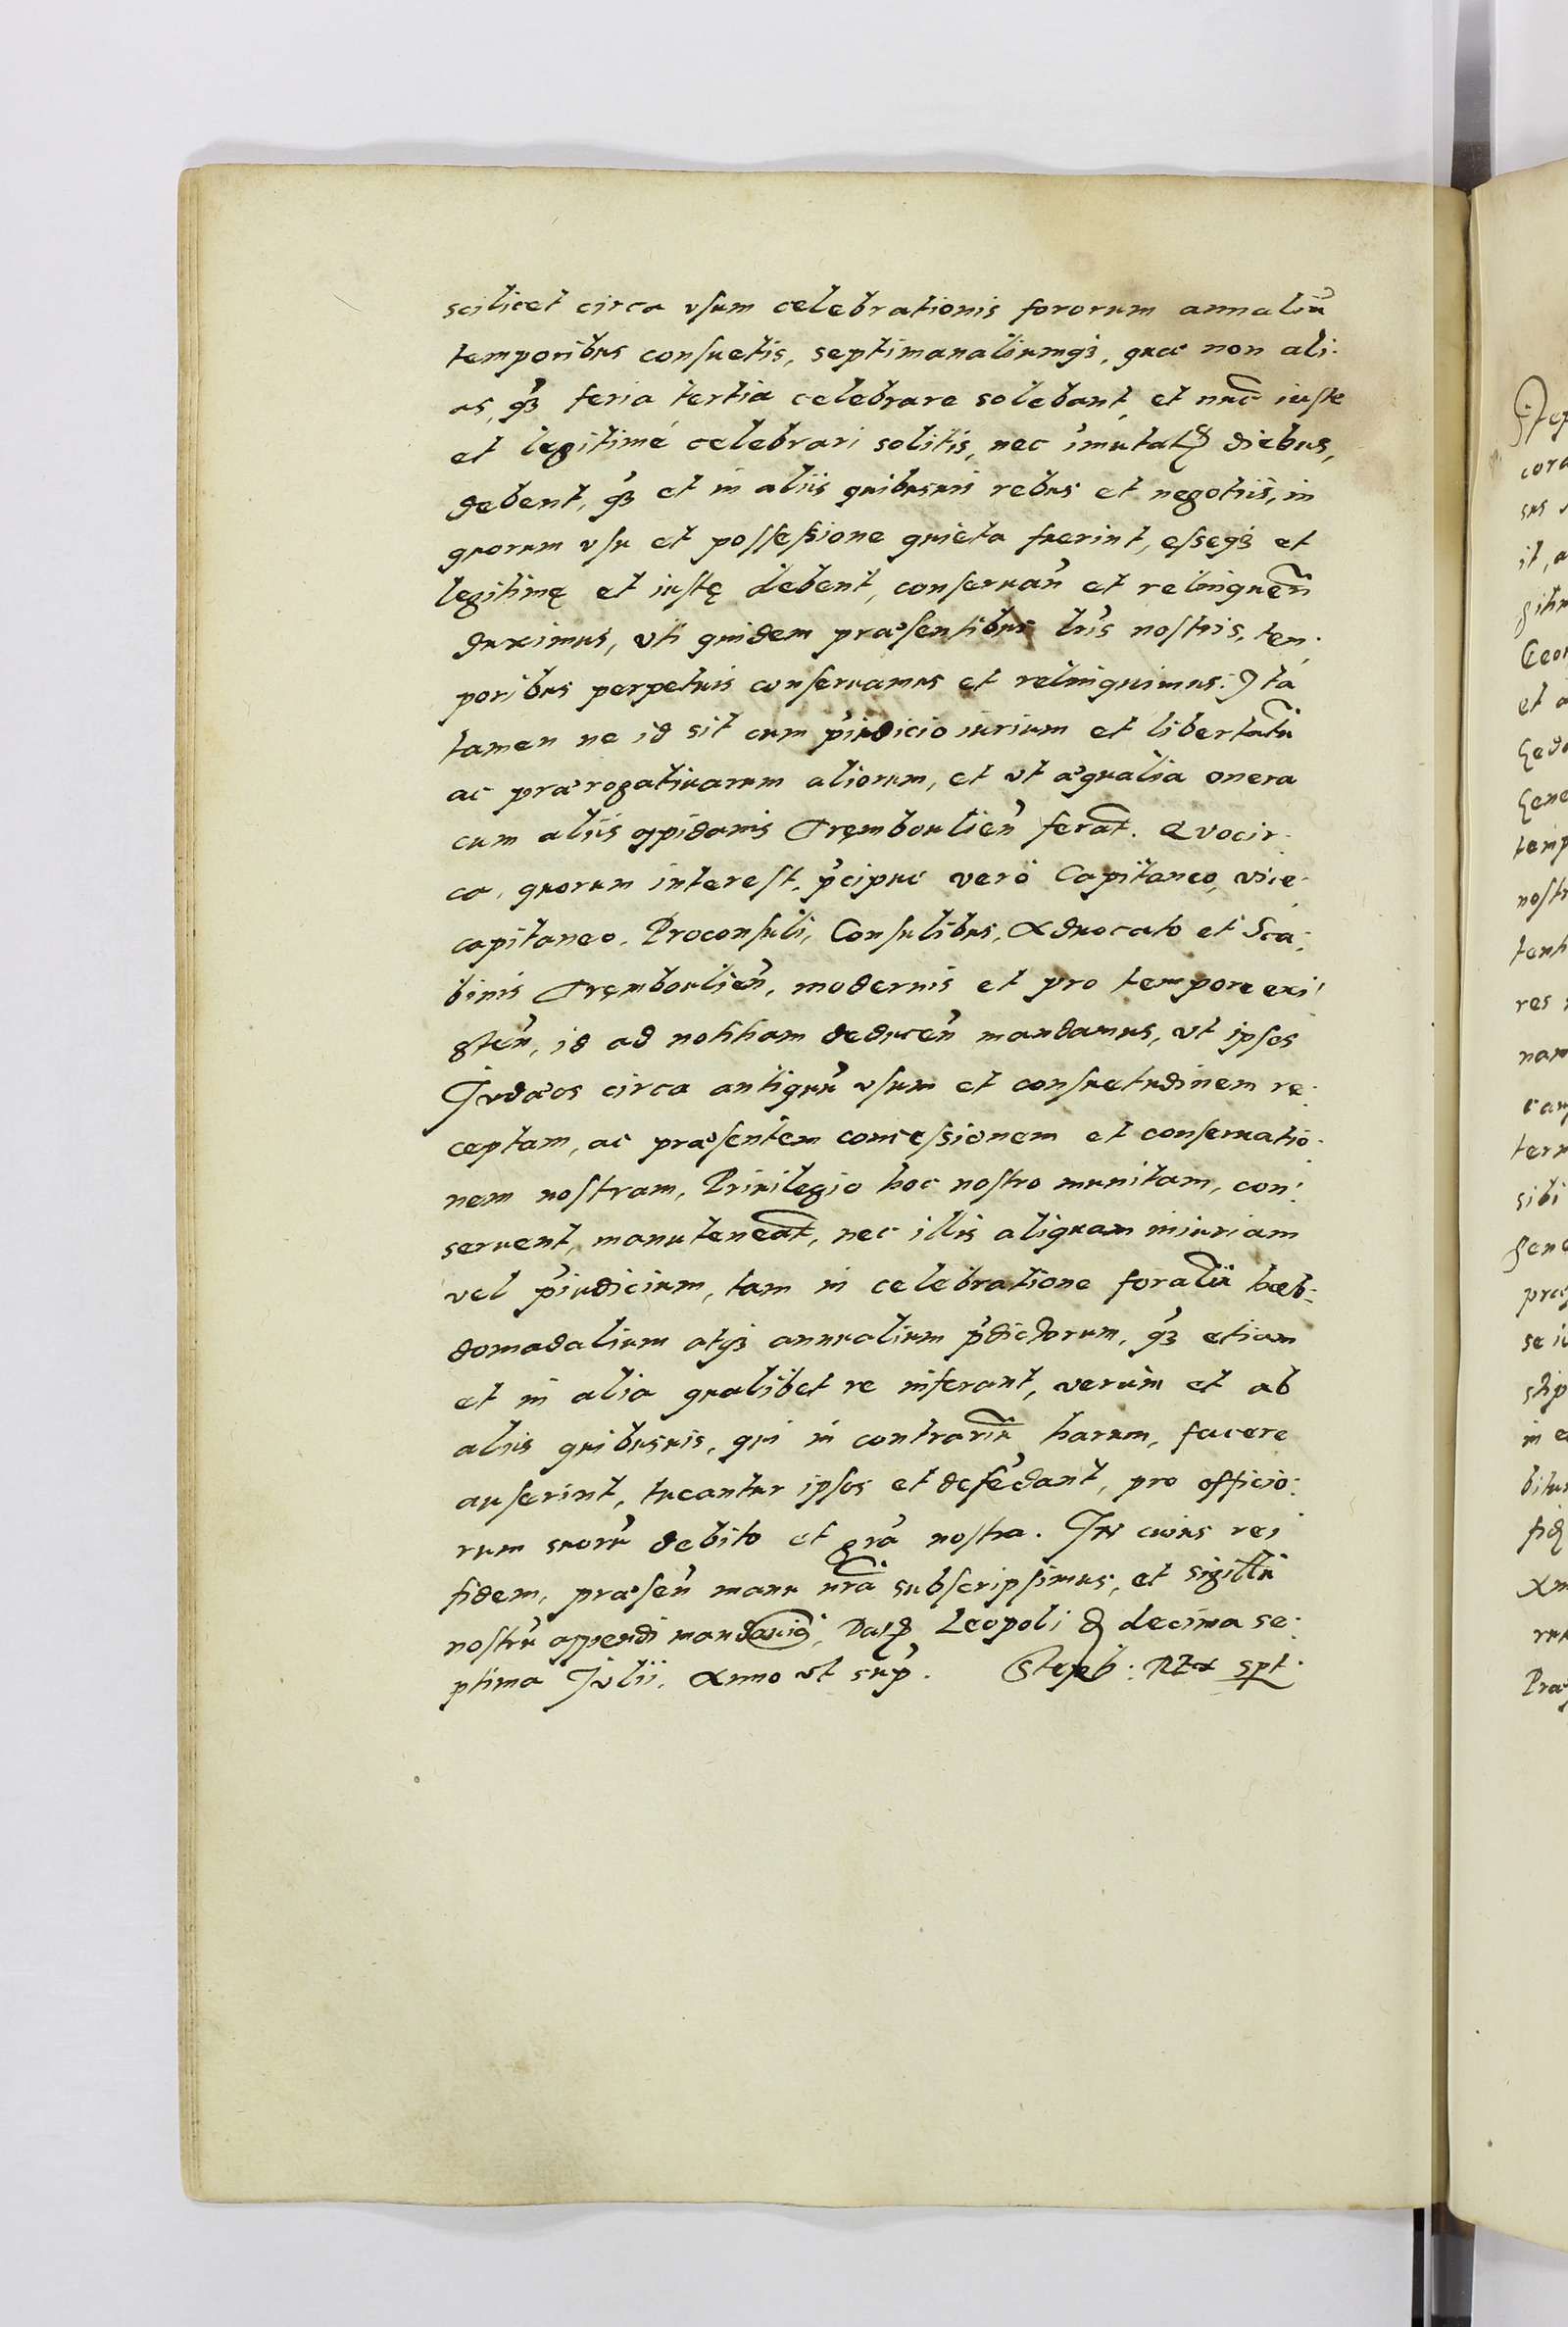 scilicet circa vsum celebrationis fororum annaliũ
temporibus consuetis, septimanaliumqꝫ, quæ non ali-
as, qꝫ feria tertia celebrare solebant, et nũc iuste
et legitimé celebrari solitis, nec imutatꝭ diebus,
debent, qꝫ et in aliis quibusuis rebus et negotiis, in
quorum vsu et possessione quieta fuerint, esseqꝫ et
legitimę et iustę debent, conseruan̄ et relinquen̄
duximus, vti quidem præsentibus lr̃is nostris, tem-
poribus perpetuis conseruamus et relinquimus. Ita
tamen ne id sit cum p̃iudicio iurium et libertatũ
ac prærogatiuarum aliorum, et vt æqualia onera
cum aliis oppidanis Tręmboulien̄ ferãt. Quocir-
ca, quorum interest, p̃cipue verò Capitaneo, vice-
capitaneo, Proconsuli, Consulibus, Aduocato et Sca-
binis Tręmboulien̄, modernis et pro tempore exi-
sten̄, id ad notitiam deducen̄ mandamus, vt ipsos
Judæos circa antiquũ vsum et consuetudinem re-
ceptam, ac præsentem concessionem et conseruatio-
nem nostram, Priuilegio hoc nostro munitam, con-
seruent, manuteneãt, nec illis aliquam iniuriam
vel p̃iudicium, tam in celebratione foraliũ hæb-
domadalium atqꝫ annualium p̃dictorum, qꝫ etiam
et in alia qualibet re inferant, verùm et ab
aliis quibusuis, qui in contrariũ harum, facere
auserint, tueantur ipsos et defẽdant, pro officio-
rum suorũ debito et gr̃a nostra. IN cuius rei
fidem, præsen̄ manu nr̃a subscripsimus, et sigillũ
nostrũ appendi mandauimꝰ, Datꝭ Leopoli ꝭ decima se-
ptima Julii, Anno vt sup̃. Steph: REX spt.